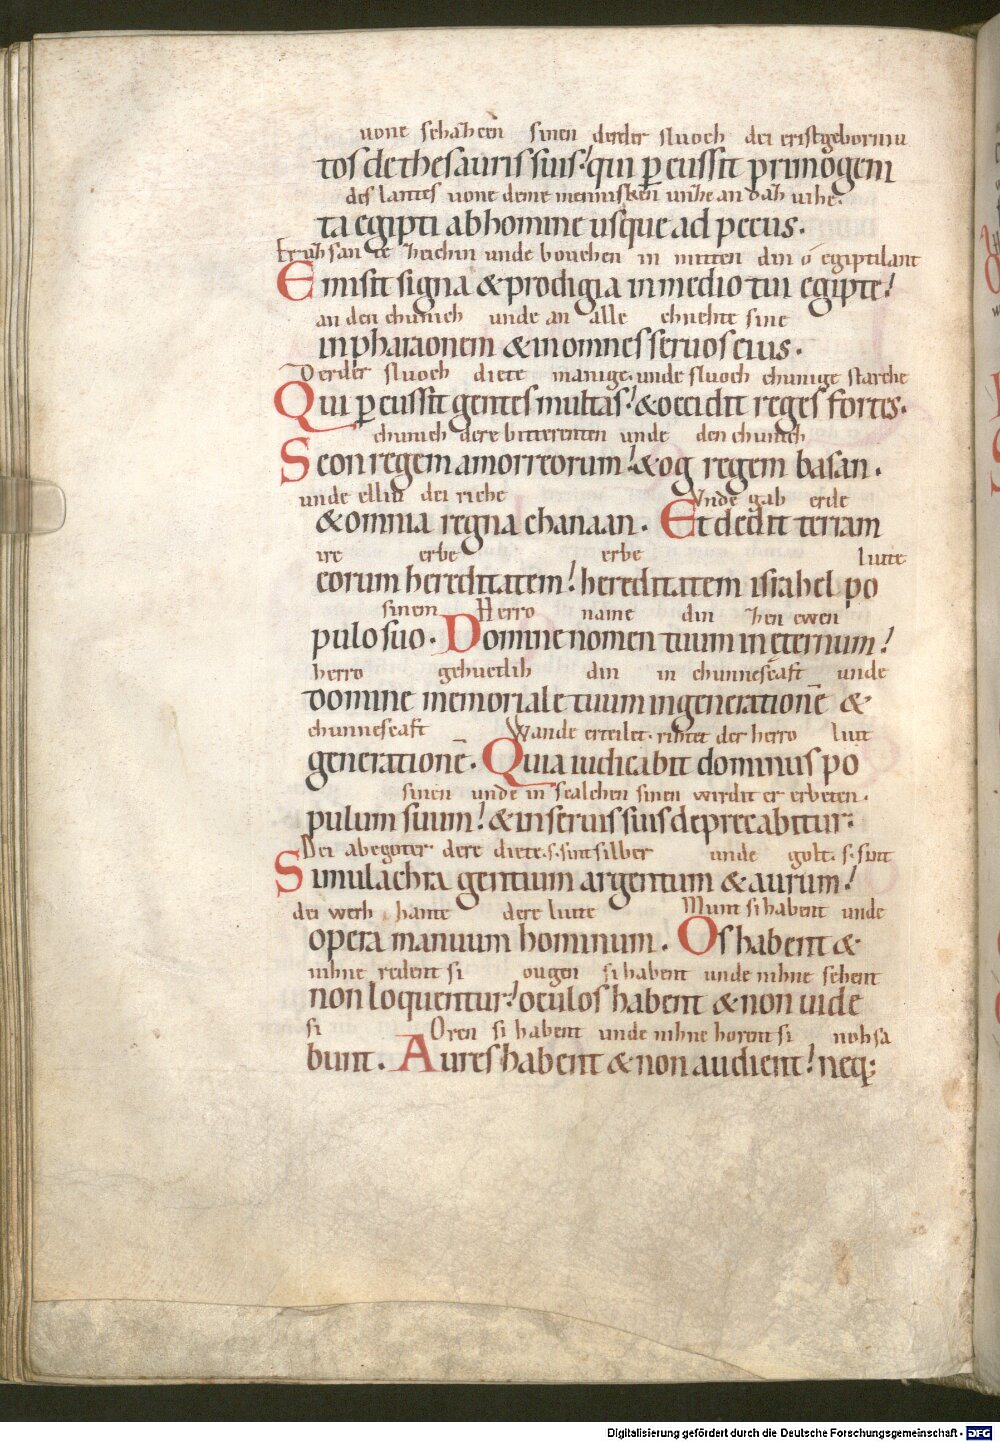 uone schahcen sinen derder sluoch dei eristgeborniu
tos de thesauris suis! qui ꝑcussit primogeni
des lantes uone deme mennisken unhe an dah uihe.
ta egipti ab homine usque ad pecus.
Er uh san te heichin unde bouchen in mitten din o egiptilant
Emisit signa & prodigia in medio tui egipte!
an den chunich unde an alle chnehte sine
in pharaonem & in omnes seruos eius.
Derder sluoch diete manige. unde sluoch chunige starche
Qui ꝑcussit gentes multas! & occidit reges fortes.
chunich dere bitterenten unde den chunich
Seon regem amorreorum! & og regem basan.
unde elliu dei riche Vnde gab erde
& omnia regna chanaan. Et dedit terram
ire erbe erbe liute
eorum hereditatem! hereditatem israhel po
sinem Herro name din hen ewen
pulo suo. Domine nomen tuum in ęternum!
herro gehuetlih din in chunnescaft unde
domine memoriale tuum in generationē &
chunnescaft Wande erteilet. rihtet der herro liut
generationē. Quia iudicabit dominus po
sinen unde in scalchen sinen wirdit er erbeten.
pulum suum! & in seruis suis deprecabitur.
Dei abegoter dere diete. s. sint silber unde golt. s. sint
Simulachra gentium argentum & aurum!
dei werh hante dere liute Munt si habent unde
opera manuum hominum. Os habent &
nihne redent si ougen si habent unde nihne sehent
non loquentur! oculos habent & non uide
si Oren si habent unde nihne horent si noh sa
bunt. Aures habent & non audient! neq;
Digitalisierung gefördert durch die Deutsche Forschungsgemeinschaft - DFG